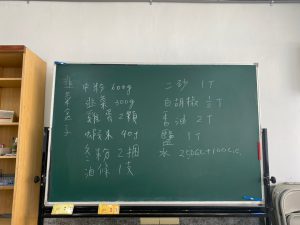 韭菜盒子
中粉 600g
韭菜 300g
雞蛋 2顆
蝦米 40g
冬粉 2捆
油條 1支
二砂 1T
白胡椒 ½T
香油 2T
鹽 1T
水 250cc+100c.c.